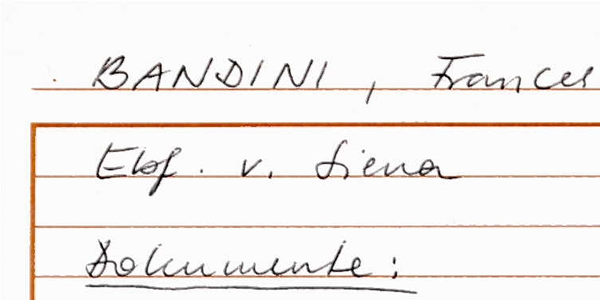 BANDINI, Frances
Ebf. v. Siena
Dokumente: